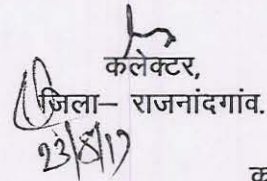 कलेक्टर,
जिला– राजनांदगांव.
23/8/19